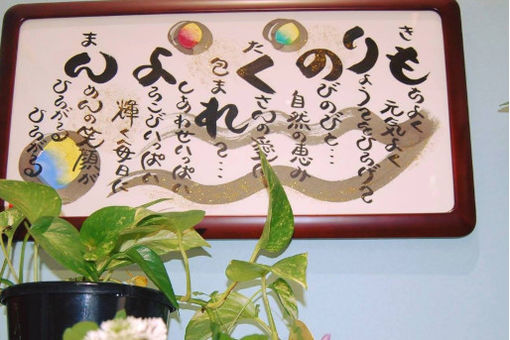 きもちよく
元気よく
りょうてをひろげて
のびのびと…
自然の恵み
たくさんの愛に
包まれて…
しあわせいっぱい
よろこびいっぱい
輝く毎日に
まんめんの笑顔が
ひろがる
ひろがる